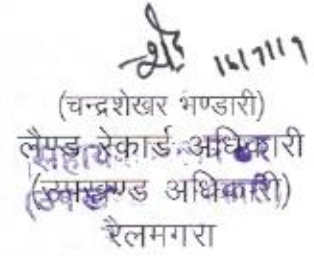 16/7/19
(चन्द्रशेखर भण्डारी)
लैण्ड रेकार्ड अधिकारी
(उपखण्ड अधिकारी)
रैलमगरा